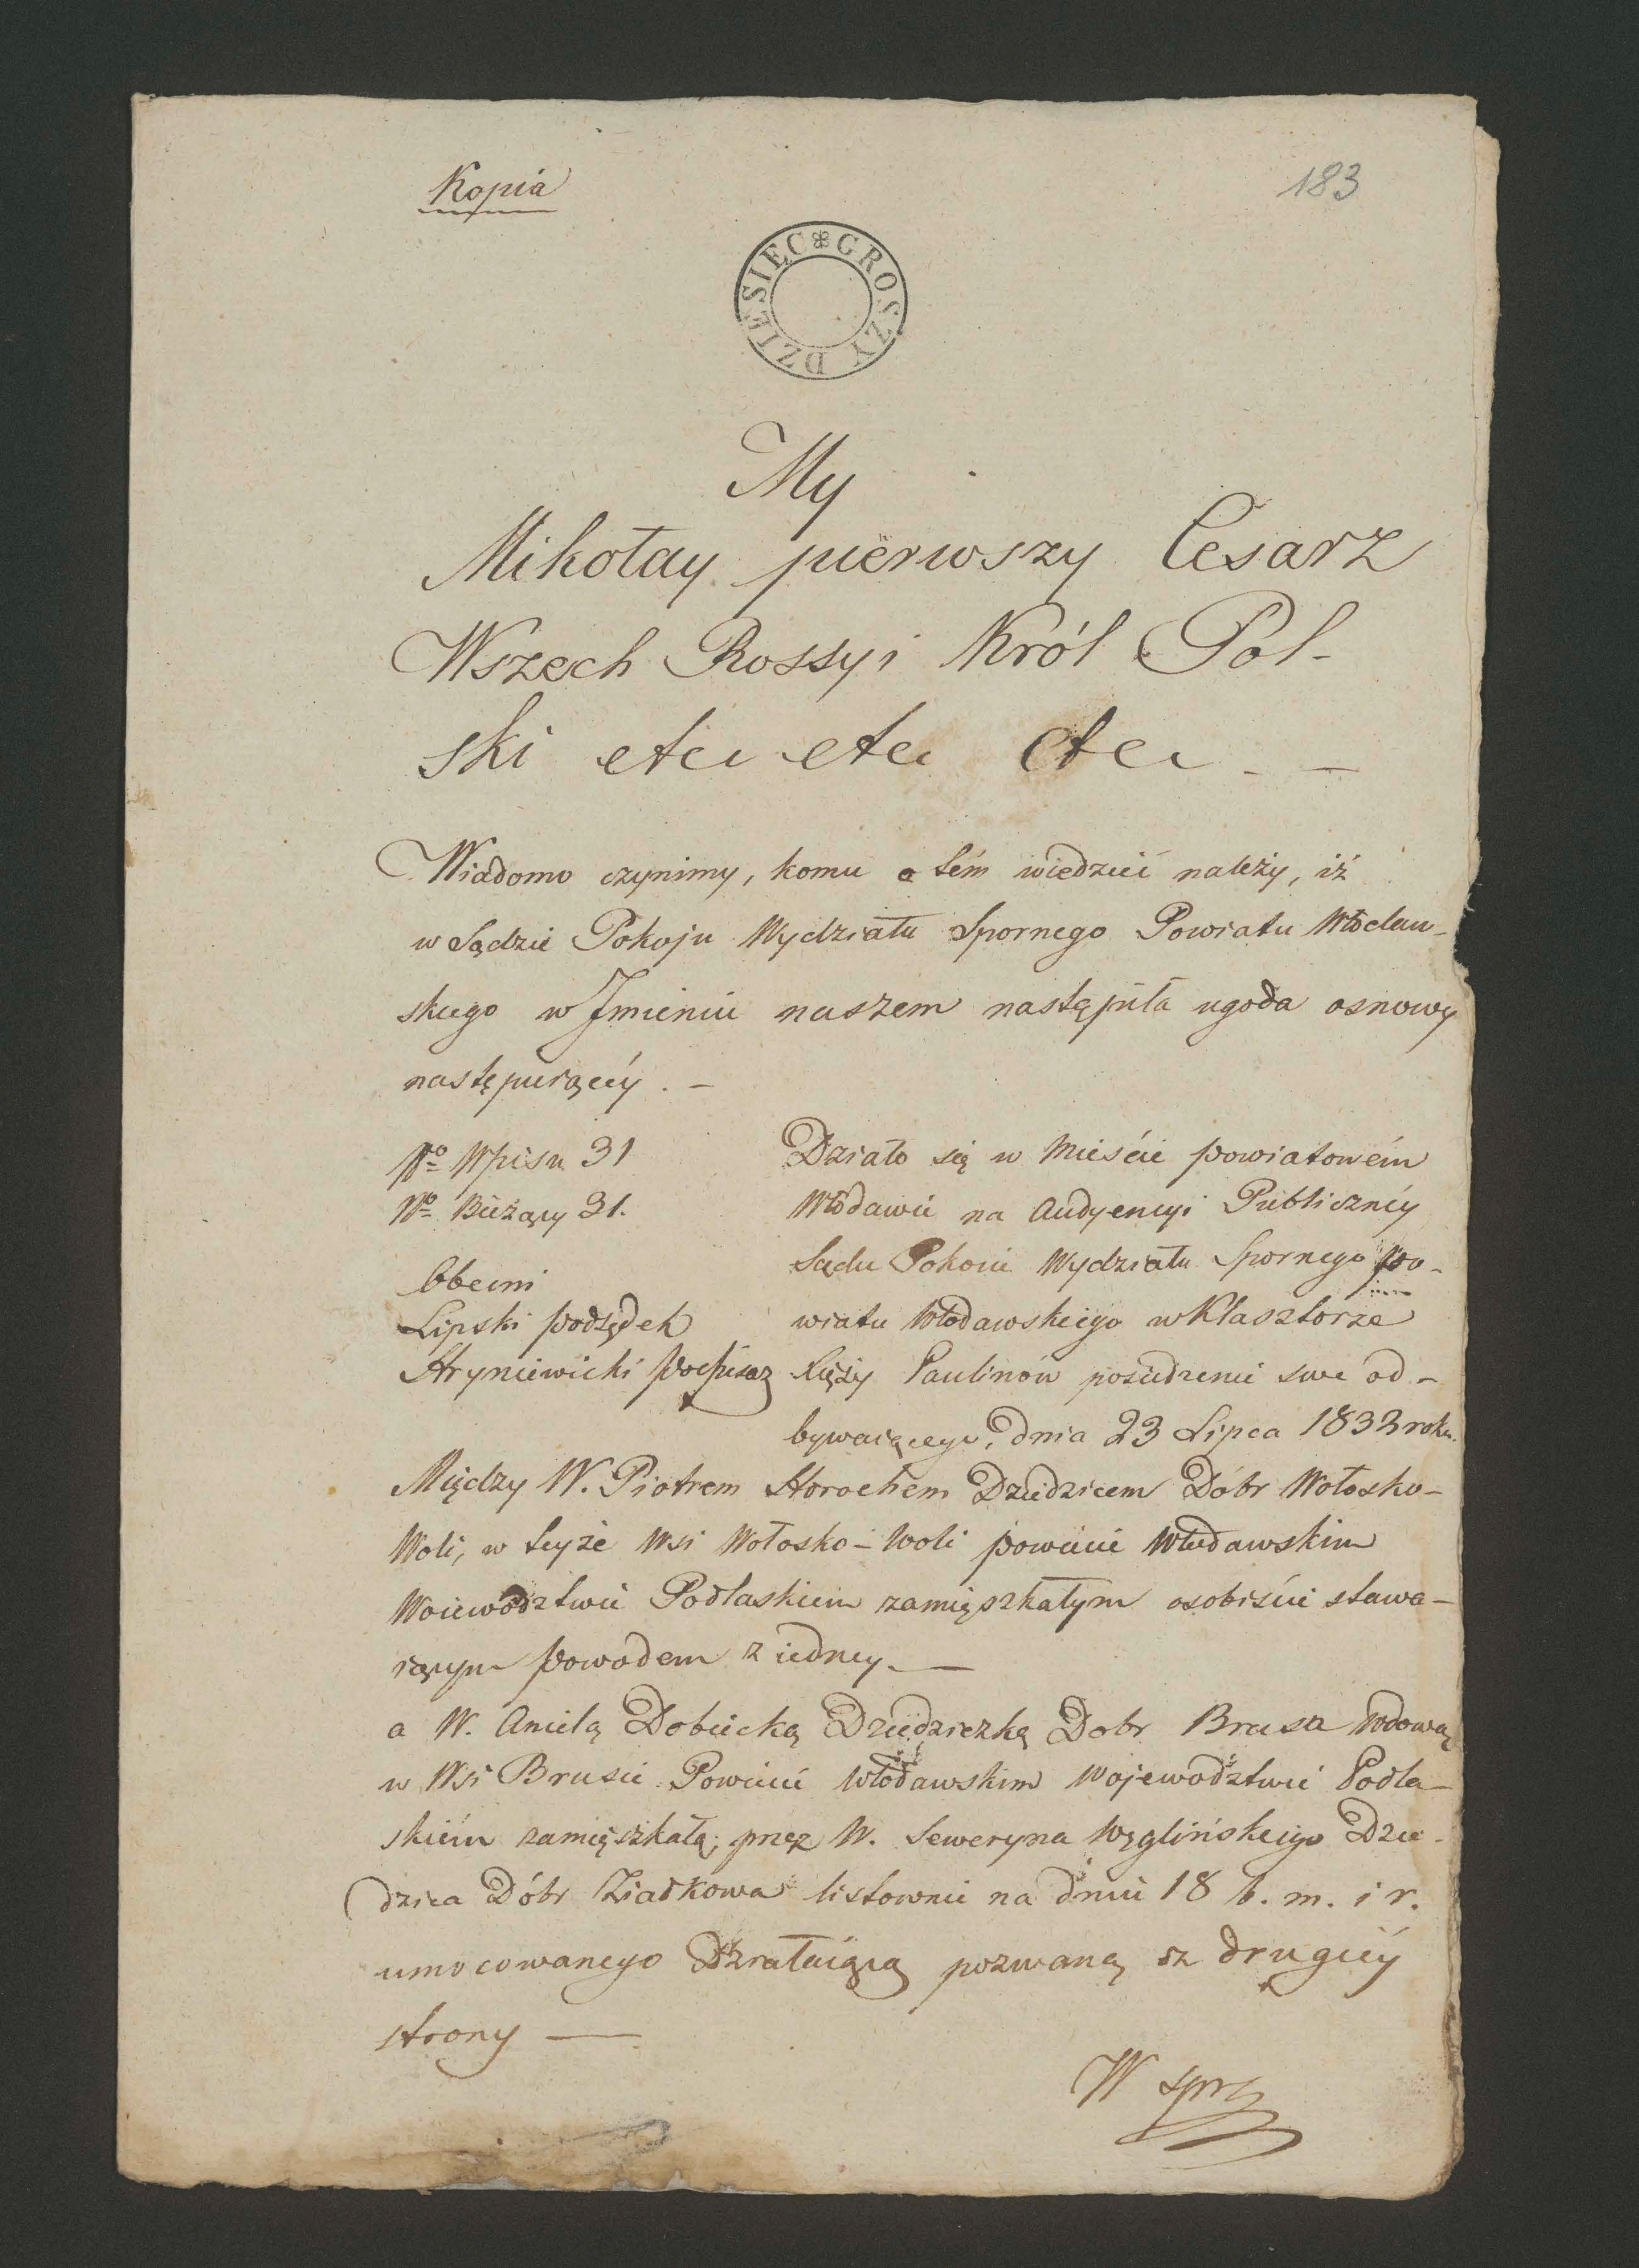 Kopia
183
DZIESIĘC GROSZY
My
Mikołay pierwszy Cesarz
Wszech Rossyi Król Pol-
ski etc etc etc
Wiadomo czynimy, komu o tém wiedzieć należy, iż
w Sądzie Pokoju Wydziału Spornego Powiatu Włodaw-
skiego w Jmieniu naszem nastąpiła ugoda osnowy
następuiącéy. -
No Wpisu 31
No Bieżący 31.
Obecni
Lipski Podsędek
Hryniewicki Podpisarz
Działo się w Mieście powiatowém
Włodawie na Audyencyi Publicznéy
Sądu Pokoiu Wydziału Spornego Po-
wiatu Włodawskiego w Klasztorze
Xięży Paulinów posiedzenie swe od-
bywaiącego, dnia 23 Lipca 1833 roku.
Między W. Piotrem Horochem Dziedzicem Dóbr Wołosko-
Woli, w teyże Wsi Wołosko-Woli powiecie Włodawskim
Woiewództwie Podlaskiem zamięszkałym osobiście stawa-
iącym Powodem z iedney. -
a W. Anielą Dobiecką Dziedziczką Dobr Brusa Wdową
w Wsi Brusie Powiecie Włodawskim Województwie Podla-
skiém zamięszkałą, przez W. Seweryna Węglińskiego Dzie-
dzica Dóbr Ziatkowa listownie na dniu 18 b. m. i r.
umocowanego Działaiącą pozwaną z drugiéy
strony -
W spr